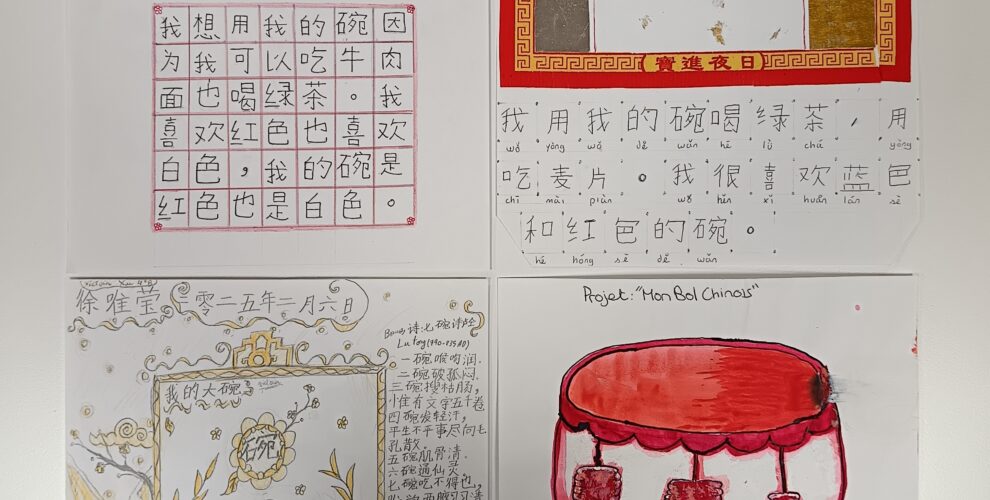 我想用我的碗因
为我可以吃牛肉
面也喝绿茶。我
喜欢红色也喜欢
白色，我的碗是
红色也是白色。
寶進夜日
我用我的碗喝绿茶，用
wǒ yòng wǒ dě wǎn hē lǜ chá yòng
吃麦片。我很喜欢蓝色
chī mài piàn wǒ hěn xǐ huān lán sè
和红色的碗。
hé hóng sè dě wǎn
徐唯莹 二零二五年二月六日
诗:七碗诗卢仝
Lu Tong (790-835 AD)
一碗喉吻润.
二碗破孤闷.
三碗搜枯肠，
惟有文字五千卷
四碗发轻汗，
平生不平事尽向毛
孔散。
五碗肌骨清.
六碗通仙灵.
七碗吃不得也，
我的大碗
碗
Projet: "Mon Bol Chinois"